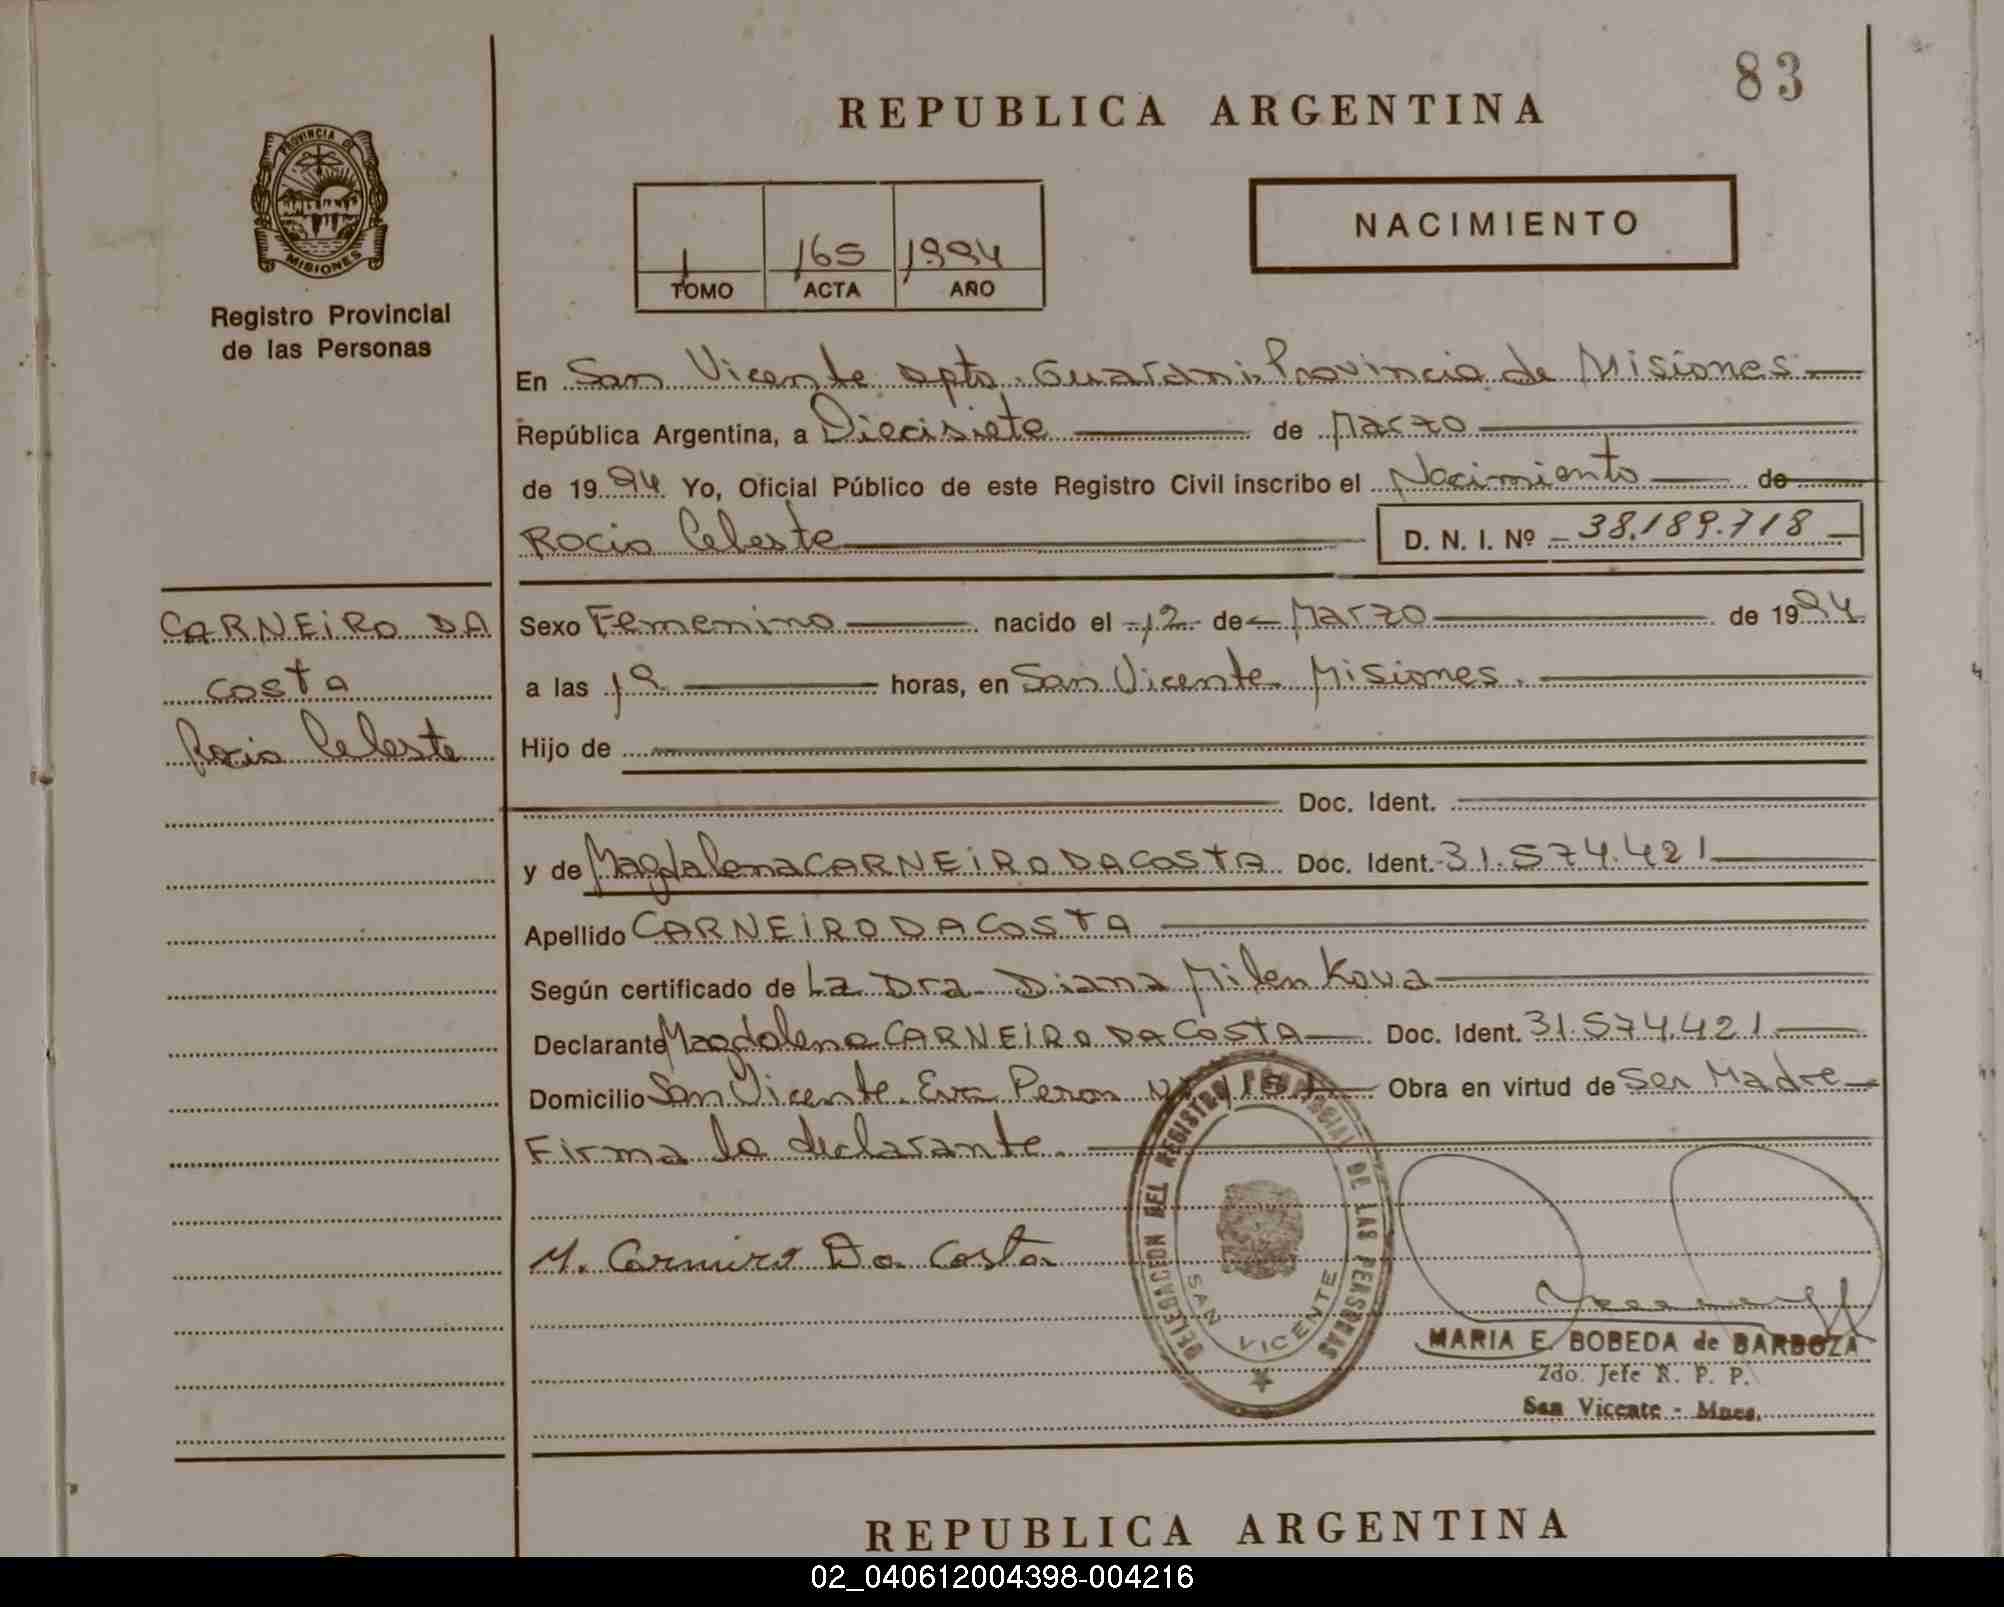 83
REPUBLICA ARGENTINA
PROVINCIA DE
MISIONES
Registro Provincial
de las Personas
NACIMIENTO
1 165 1994
TOMO ACTA AÑO
En San Vicente Dpto. Guarani, Provincia de Misiones
República Argentina, a Diecisiete de Marzo
de 1994 Yo, Oficial Público de este Registro Civil inscribo el Nacimiento de
Rocio Celeste D. N. I. Nº 38.189.718
CARNEIRO DA
COSTA
Rocio Celeste
Sexo Femenino nacido el 12 de Marzo de 1994
a las 19 horas, en San Vicente Misiones.
Hijo de
Doc. Ident.
y de Magdalena CARNEIRO DA COSTA Doc. Ident. 31.574.421
Apellido CARNEIRO DA COSTA
Según certificado de La Dra. Diana Milenkova
Declarante Magdalena CARNEIRO DA COSTA Doc. Ident. 31.574.421
Domicilio San Vicente. Eva Peron Obra en virtud de Ser Madre
Firma la declarante.
M. Carneiro Da Costa
DELEGACION DEL REGISTRO PROVINCIAL DE LAS PERSONAS
SAN VICENTE
MARIA E. BOBEDA de BARBOZA
2do. Jefe R. P. P.
San Vicente - Mnes.
REPUBLICA ARGENTINA
02_040612004398-004216